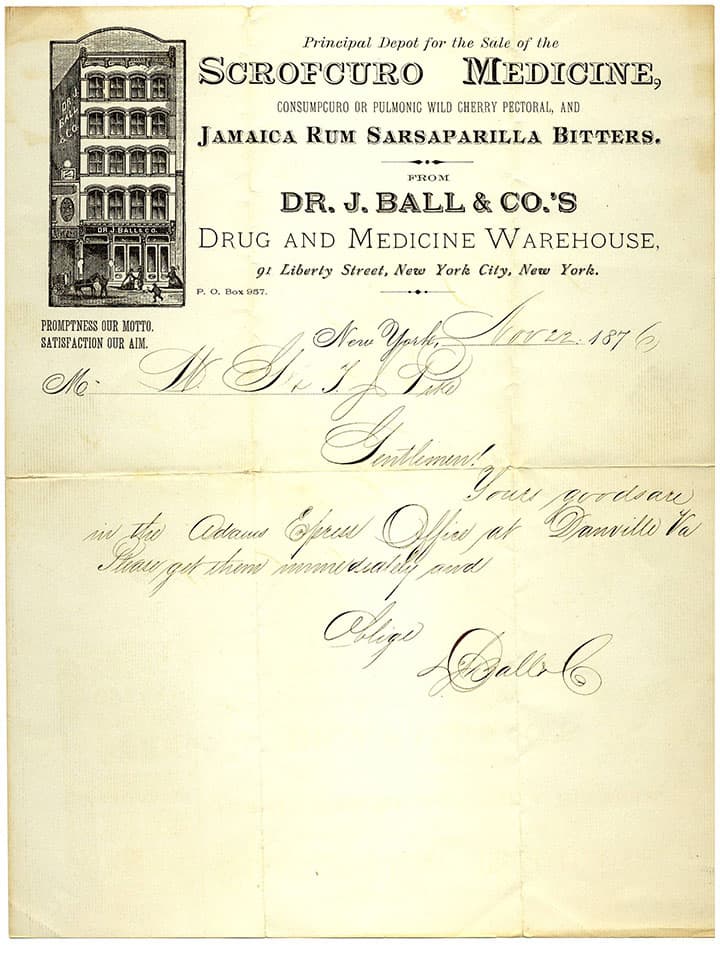 Principal Depot for the Sale of the
SCROFCURO MEDICINE,
CONSUMPCURO OR PULMONIC WILD CHERRY PECTORAL, AND
JAMAICA RUM SARSAPARILLA BITTERS.
FROM
DR. J. BALL & CO.'S
DRUG AND MEDICINE WAREHOUSE,
91 Liberty Street, New York City, New York.
P. O. Box 957.
DR. J. BALL & CO.
DR. J. BALL & CO.
PROMPTNESS OUR MOTTO.
SATISFACTION OUR AIM.
New York, Nov 22. 1876
M. W. T J Pike
Gentlemen!
Yours goods are
in the Adams Epress Office at Danville Va
Please get them immediately and
Oblige
Dr J Ball & Co